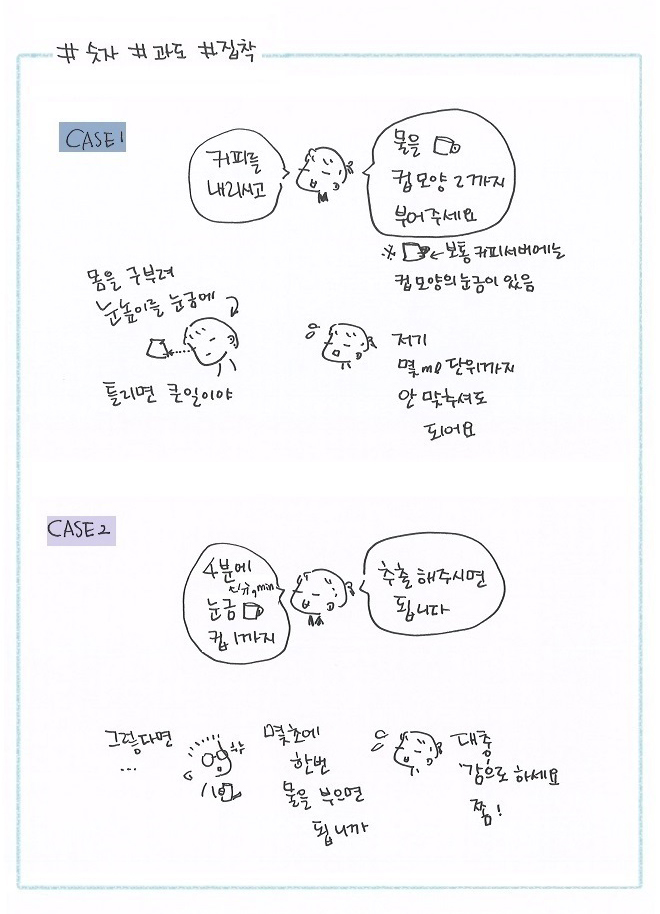 #숫자 #과도 #집착
CASE1
커피를
내리시고
물을
컵모양 2까지
부어주세요
※ ← 보통 커피서버에는
컵모양의 눈금이 있음
몸을 구부려
눈높이를 눈금에
틀리면 큰일이야
저기
몇ml단위까지
안 맞추셔도
되어요
CASE2
4분에
단위, min
눈금
컵 1까지
추출해주시면
됩니다
그렇다면
...
몇초에
한번
물을 부으면
됩니까
대충
감으로 하세요
쫌!